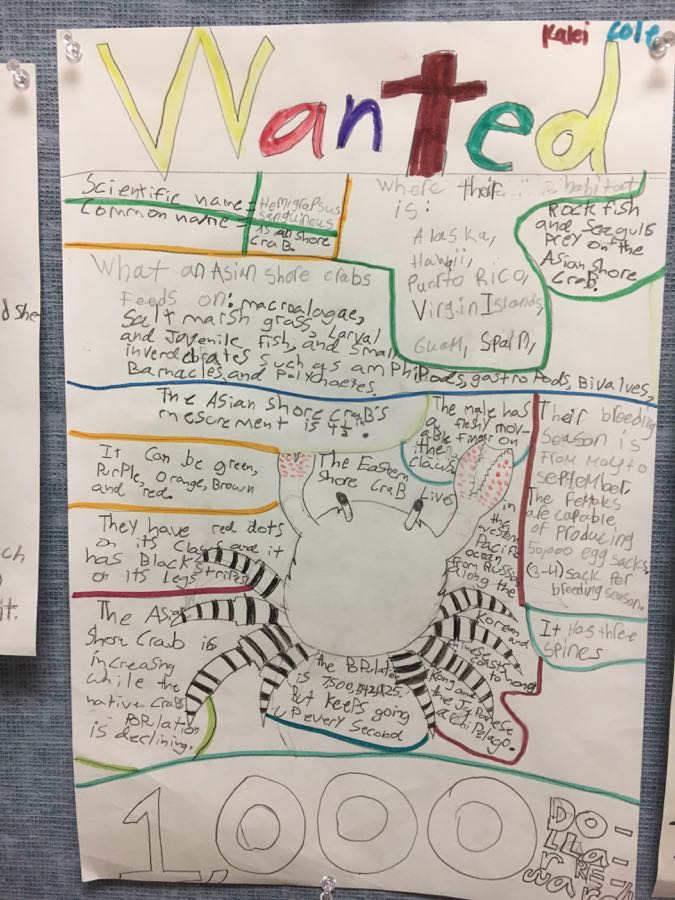 Kalei Cole
Wanted
Scientific name =
Hemigrapsus
sanguineus
Common name =
Asian shore
CraB.
Where their
is habitat
is:
Alaska,
Hawii,
Puerto RICO,
Virgin Islands,
Guam, Spain,
Rock fish
and seagulls
Prey on the
Asian shore
Crab.
What an Asian shore crabs
Feeds on: macroalagae,
Salt marsh grass, Larval
and Juvenile fish, and small
inverdebrates such as am Phi Pods, gastroPods, Bivalves,
Barnacles, and Polychaetes.
The Asian shore craB's
mescrement is 4½ in.
The male has
a fleshy mov-
able finger on
the
claws
Their breeding
season is
From May to
sePtember.
The Females
are capable
of Producing
50,000 egg sacks,
(3-4) sack Per
breeding season.
It Can be green,
Purple, orange, Brown
and red.
The Eastern
Shore CraB
Lives
in
the
western
Pacific
ocean
From Russia
along the
Korean and
Chinese
coasts
to hong
Kong and
the JaPanese
They have red dots
on its Claws and it
has Black stripes
on its Legs
The Asian
Shore Crab is
increasing
while the
native Crabs
PoPulation
is declining.
the
is
But KeePs going
uP every Second
It has three
spines
1,000
DO-
LLA-
RE-